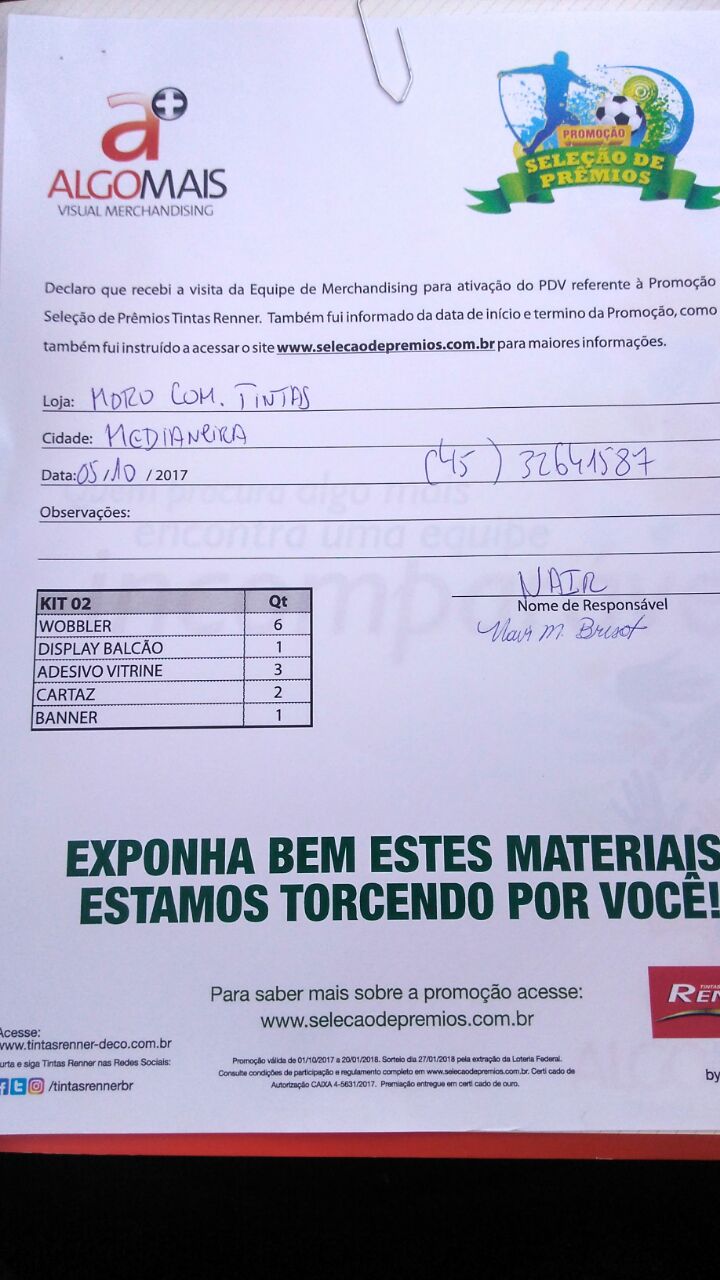 a+
ALGOMAIS
VISUAL MERCHANDISING
PROMOÇÃO
SELEÇÃO DE
PRÊMIOS
Declaro que recebi a visita da Equipe de Merchandising para ativação do PDV referente à Promoção
Seleção de Prêmios Tintas Renner. Também fui informado da data de início e termino da Promoção, como
também fui instruído a acessar o site www.selecaodepremios.com.br para maiores informações.
Loja: MORO COM. TINTAS
Cidade: MEDIANEIRA
Data: 05/10 / 2017 (45) 32641587
Observações:
NAIR
Nome de Responsável
Nair M. Brisot
KIT 02 Qt
WOBBLER 6
DISPLAY BALCÃO 1
ADESIVO VITRINE 3
CARTAZ 2
BANNER 1
EXPONHA BEM ESTES MATERIAIS
ESTAMOS TORCENDO POR VOCÊ!
Para saber mais sobre a promoção acesse:
www.selecaodepremios.com.br
TINTAS
REN
Acesse:
www.tintasrenner-deco.com.br
urta e siga Tintas Renner nas Redes Sociais:
/tintasrennerbr
Promoção válida de 01/10/2017 a 20/01/2018. Sorteio dia 27/01/2018 pela extração da Loteria Federal.
Consulte condições de participação e regulamento completo em www.selecaodepremios.com.br. Certi cado de
Autorização CAIXA 4-5631/2017. Premiação entregue em certi cado de ouro.
by